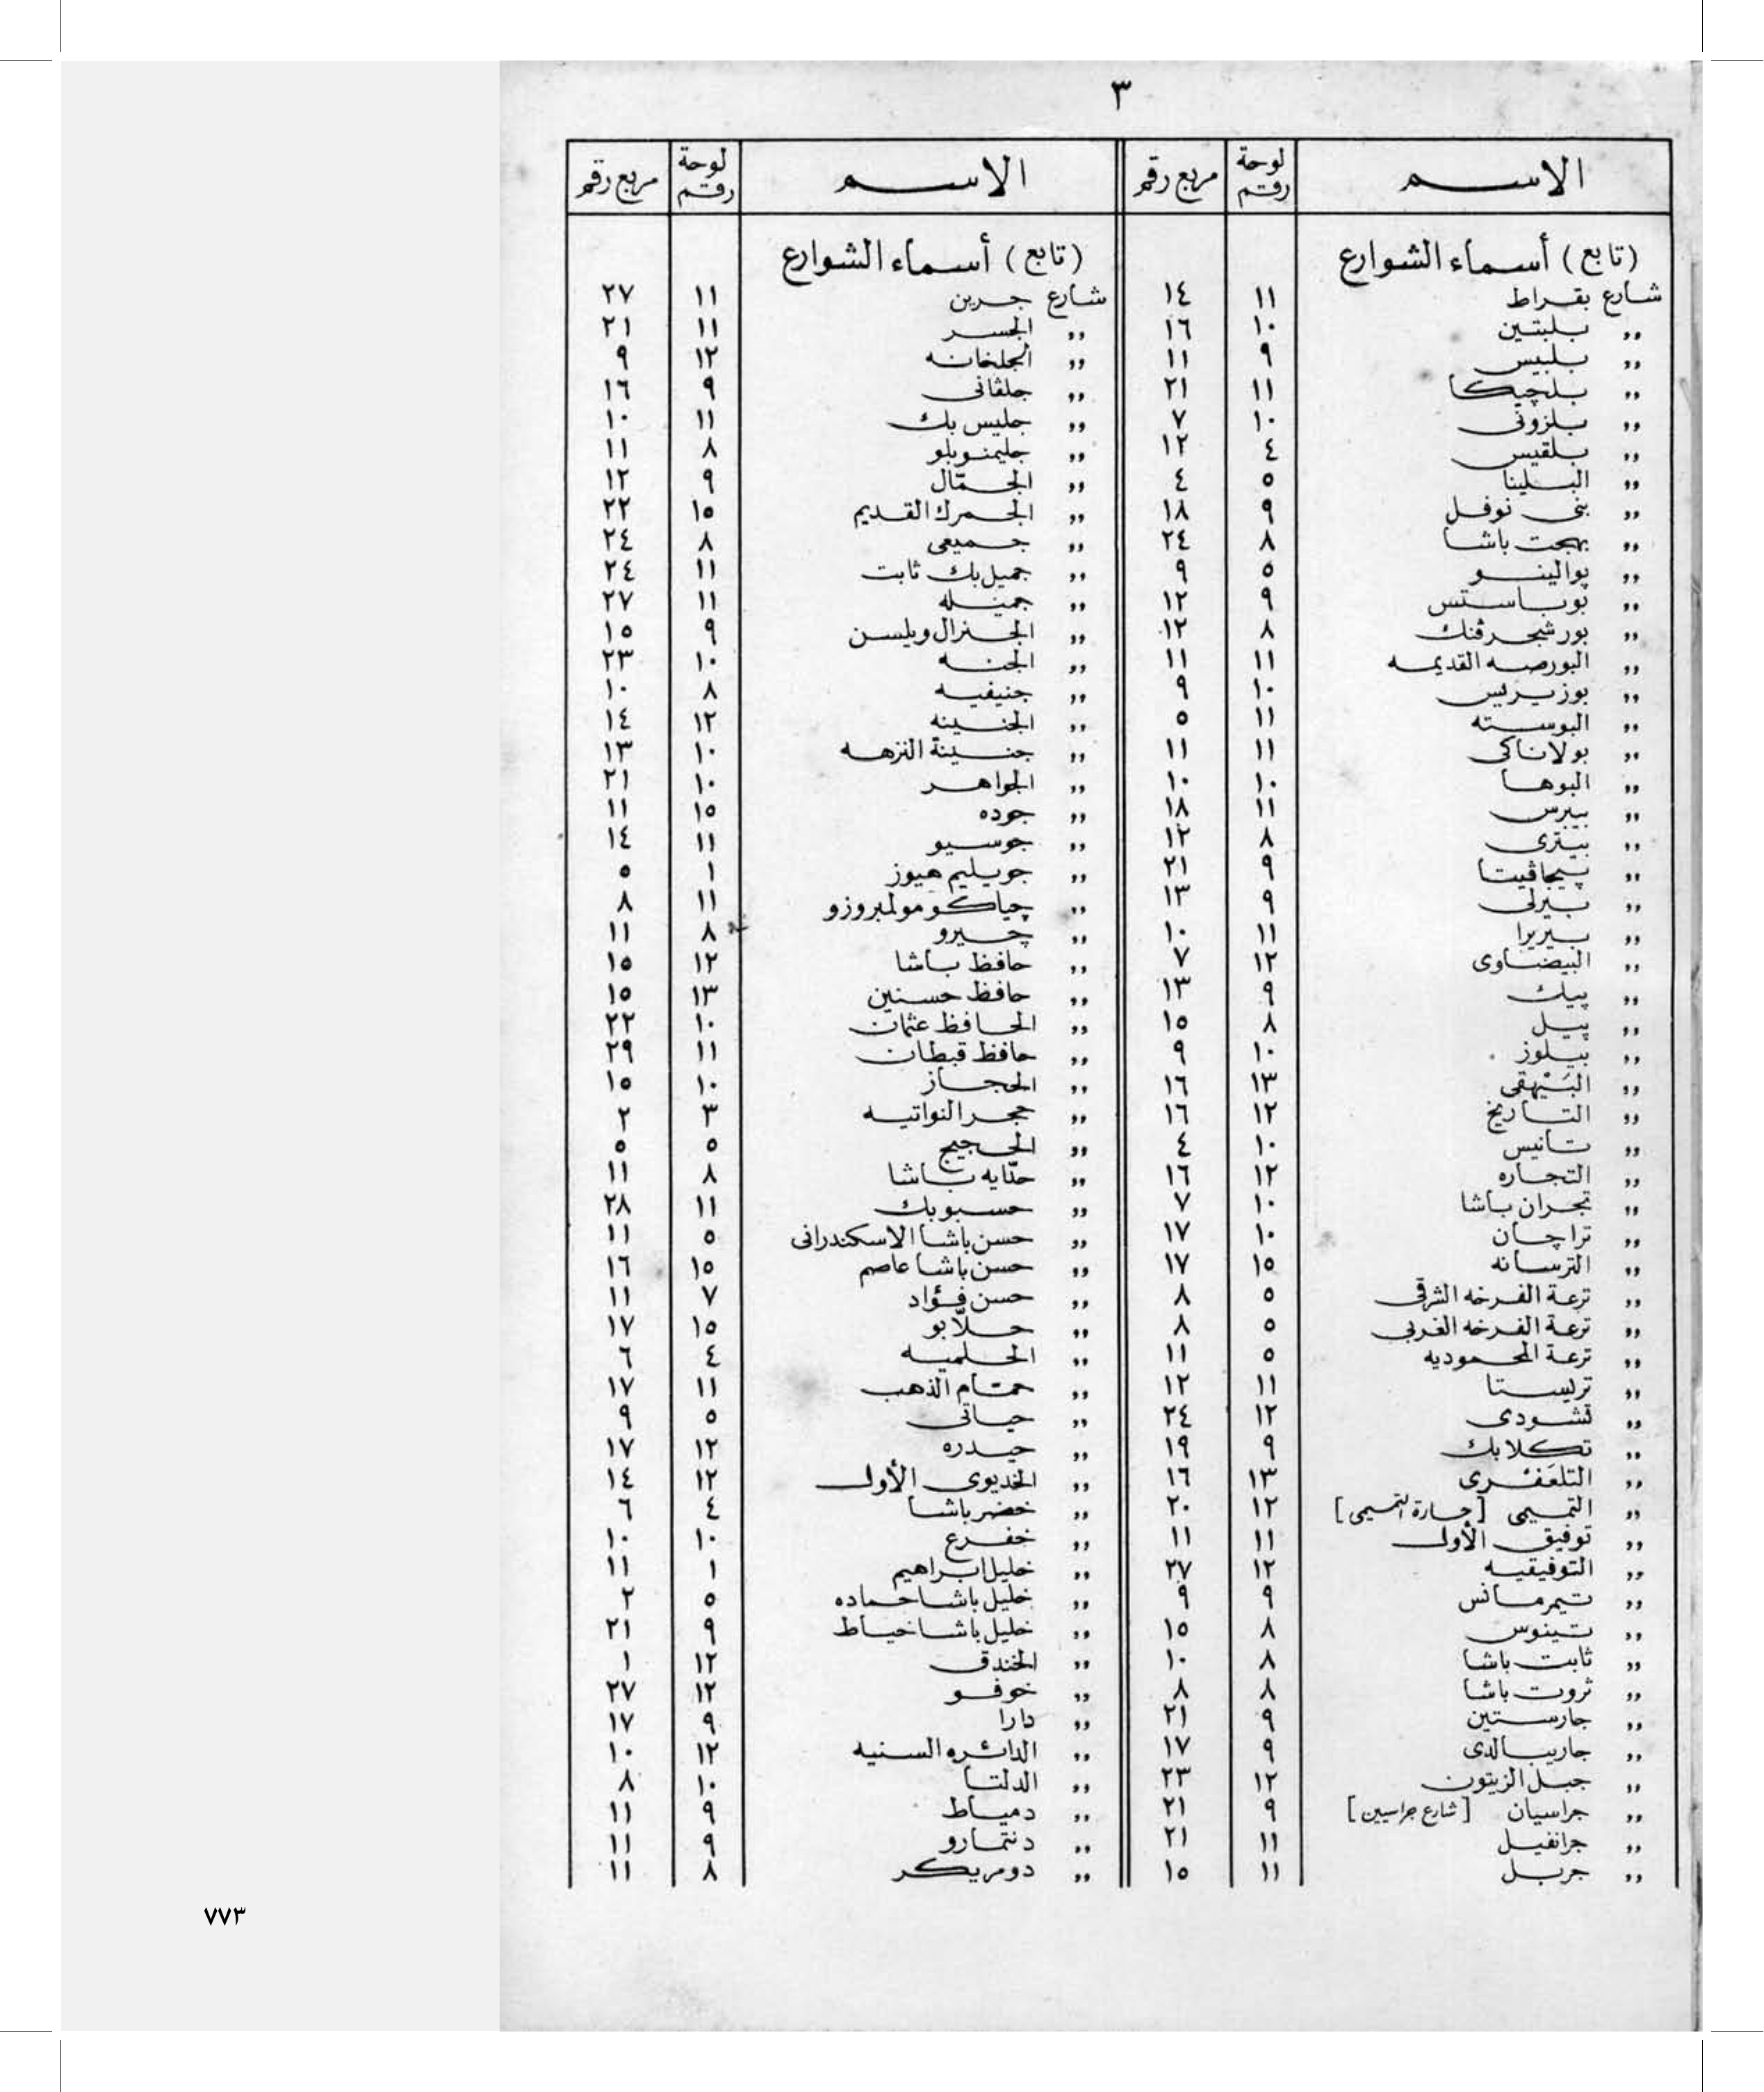 ٣
الاسم لوحة رقم مربع رقم
(تابع) أسماء الشوارع
شارع بقراط ١١ ١٤
,, بلبتين ١٠ ١٦
,, بلبيس ٩ ١١
,, بلچيكا ١١ ٢١
,, بلزونى ١٠ ٧
,, بلقيس ٤ ١٢
,, البلينا ٥ ٤
,, بنى نوفل ٩ ١٨
,, بهجت باشا ٨ ٢٤
,, پوالينو ٥ ٩
,, بوباستس ٩ ١٢
,, بورشجرڤنك ٨ ١٢
,, البورصه القديمه ١١ ١١
,, بوزيريس ١٠ ٩
,, البوسته ١١ ٥
,, بولاناكى ١١ ١١
,, البوها ١٠ ١٠
,, بيبرس ١١ ١٨
,, بينترى ٨ ١٢
,, پيجاڤيتا ٩ ٢١
,, بيرلى ٩ ١٣
,, بيريرا ١١ ١٠
,, البيضاوى ١٢ ٧
,, پيك ٩ ١٣
,, پيل ٨ ١٥
,, بيلوز ١٠ ٩
,, البَيْهقى ١٣ ١٦
,, التاريخ ١٢ ١٦
,, تانيس ١٠ ٤
,, التجاره ١٢ ١٦
,, تجران باشا ١٠ ٧
,, تراچان ١٠ ١٧
,, الترسانه ١٥ ١٧
,, ترعة الفرخه الشرقى ٥ ٨
,, ترعة الفرخه الغربى ٥ ٨
,, ترعة المحموديه ٥ ١١
,, تريستا ١١ ١٢
,, تشودى ١٢ ٢٤
,, تكلا بك ٩ ١٩
,, التلعَفْرى ١٣ ١٦
,, التميمى [حارة التميمى] ١٢ ٢٠
,, توفيق الأول ١١ ١١
,, التوفيقيه ١٢ ٢٧
,, تيمرمانس ٩ ٩
,, تينوس ٨ ١٥
,, ثابت باشا ٨ ١٠
,, ثروت باشا ٨ ٨
,, جارستين ٩ ٢١
,, جاريبالدى ٩ ١٧
,, جبل الزيتون ١٢ ٢٣
,, جراسيان [شارع جراسيين] ٩ ٢١
,, جرانفيل ١١ ٢١
,, جربل ١١ ١٥
الاسم لوحة رقم مربع رقم
(تابع) أسماء الشوارع
شارع جرين ١١ ٢٧
,, الجسر ١١ ٢١
,, الجلخانه ١٢ ٩
,, جلڤانى ٩ ١٦
,, جليس بك ١١ ١٠
,, جليمنوبلو ٨ ١١
,, الجمّال ٩ ١٢
,, الجمرك القديم ١٥ ٢٢
,, جميعى ٨ ٢٤
,, جميل بك ثابت ١١ ٢٤
,, جميله ١١ ٢٧
,, الجنرال ويلسن ٩ ١٥
,, الجنه ١٠ ٢٣
,, جنيفيه ٨ ١٠
,, الجنينه ١٢ ١٤
,, جنينة النزهه ١٠ ١٣
,, الجواهر ١٠ ٢١
,, جوده ١٥ ١١
,, جوسيو ١١ ١٤
,, جويليم هيوز ١ ٥
,, چياكومو لمبروزو ١١ ٨
,, چيرو ٨ ١١
,, حافظ باشا ١٢ ١٥
,, حافظ حسنين ١٣ ١٥
,, الحافظ عثمان ١٠ ٢٢
,, حافظ قبطان ١١ ٢٩
,, الحجاز ١٠ ١٥
,, حجر النواتيه ٣ ٢
,, الحجيج ٥ ٥
,, حتّايه باشا ٨ ١١
,, حسبو بك ١١ ٢٨
,, حسن باشا الاسكندرانى ٥ ١١
,, حسن باشا عاصم ١٥ ١٦
,, حسن فؤاد ٧ ١١
,, حلّابو ١٥ ١٧
,, الحلميه ٤ ٦
,, حمّام الذهب ١١ ١٧
,, حياتى ٥ ٩
,, حيدره ١٢ ١٧
,, الخديوى الأول ١٢ ١٤
,, خضر باشا ٤ ٦
,, خفرع ١٠ ١٠
,, خليل ابراهيم ١ ١١
,, خليل باشا حماده ٥ ٢
,, خليل باشا خياط ٩ ٢١
,, الخندق ١٢ ١
,, خوفو ١٢ ٢٧
,, دارا ٩ ١٧
,, الدائره السنيه ١٢ ١٠
,, الدلتا ١٠ ٨
,, دمياط ٩ ١١
,, دنتمارو ٩ ١١
,, دومريكر ٨ ١١
٧٧٣